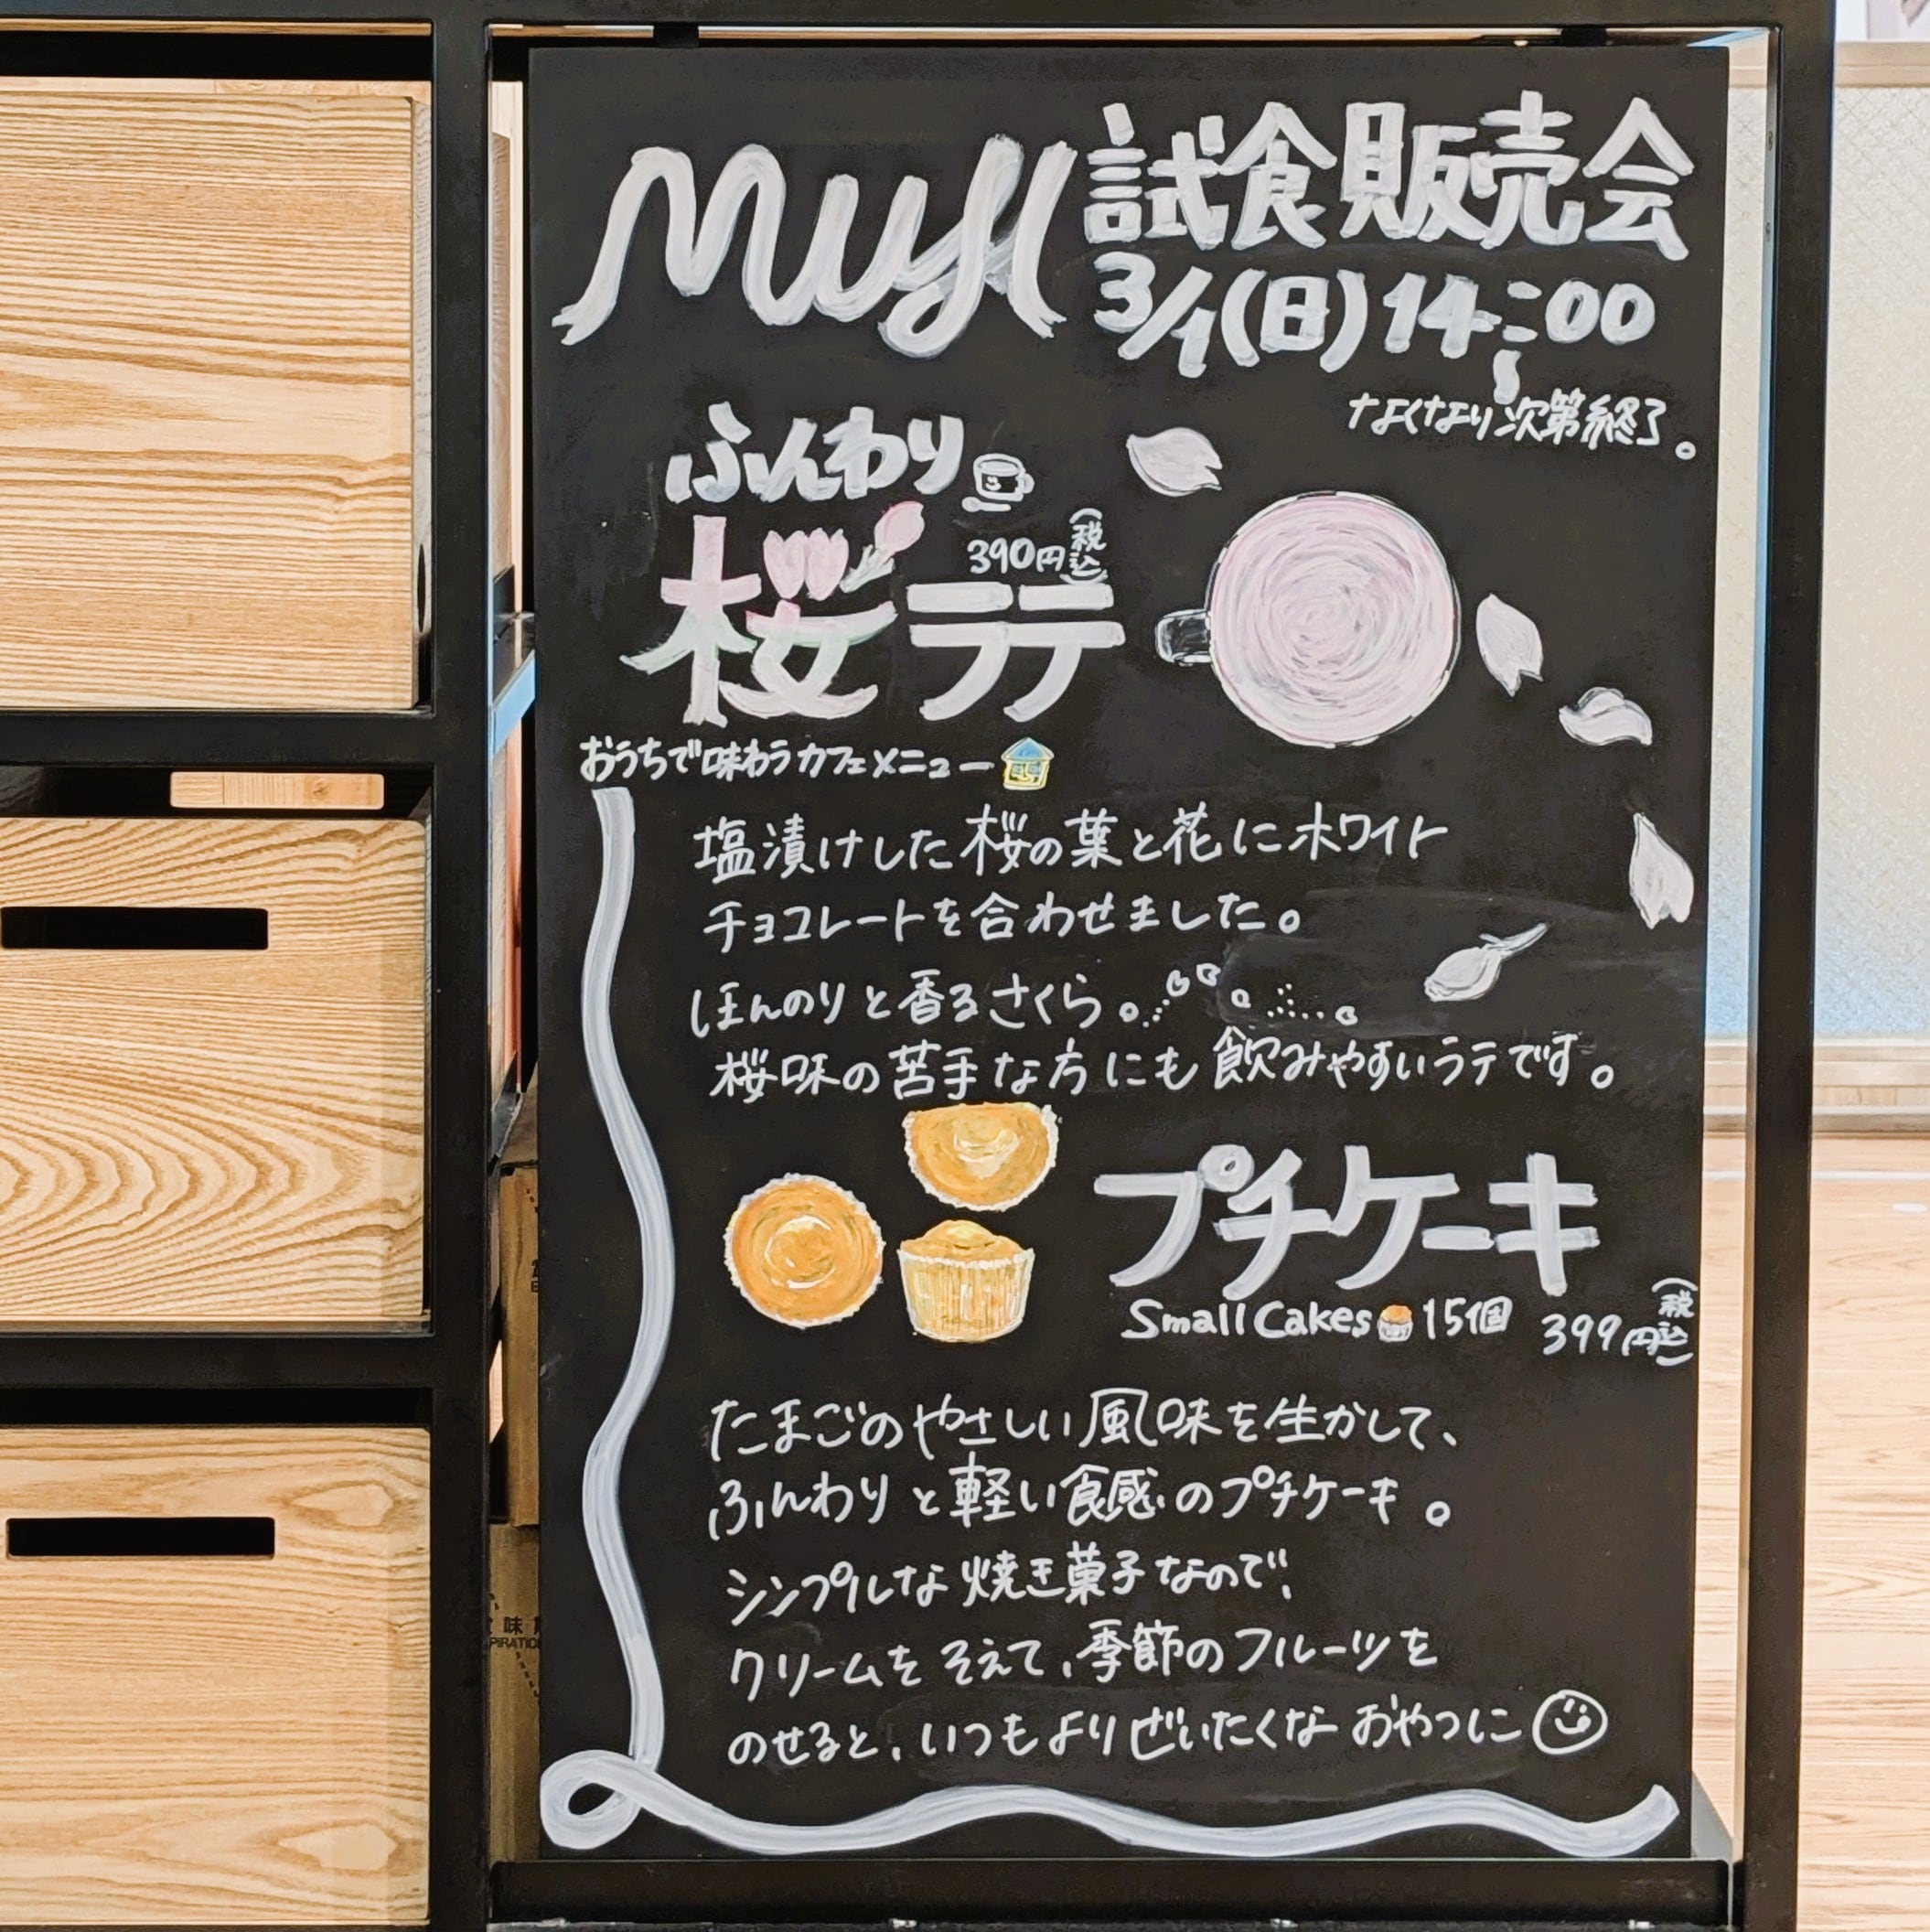 MUJI 試食販売会
3/1(日)14:00
〜
なくなり次第終了。
ふんわり
390円(税込)
桜ラテ
おうちで味わうカフェメニュー
塩漬けした桜の葉と花にホワイト
チョコレートを合わせました。
ほんのりと香るさくら。
桜味の苦手な方にも飲みやすいラテです。
プチケーキ
Small Cakes 15個 399円(税込)
たまごのやさしい風味を生かして、
ふんわりと軽い食感のプチケーキ。
シンプルな焼き菓子なので、
クリームをそえて、季節のフルーツを
のせると、いつもよりぜいたくなおやつに
味
PIRATION